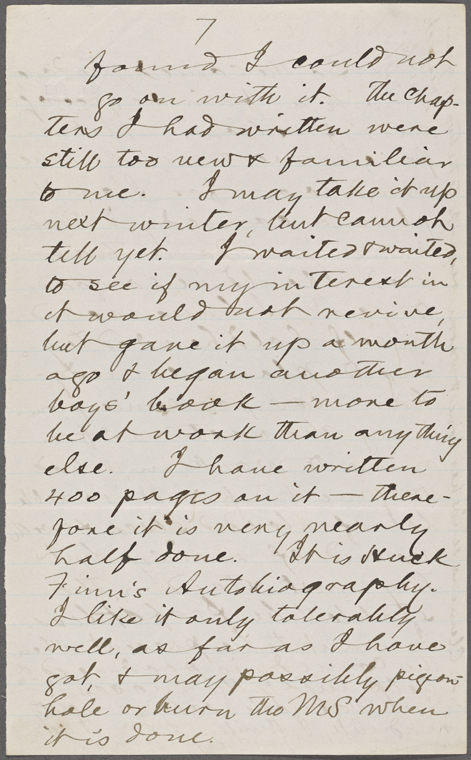 7
found I could not
go on with it. The chap-
ters I had written were
still too new & familiar
to me. I may take it up
next winter, but cannot
tell yet. I waited & waited,
to see if my interest in
it would not revive,
but gave it up a month
ago & began another
boys' book — more to
be at work than anything
else. I have written
400 pages on it — there-
fore it is very nearly
half done. It is Huck
Finn's Autobiography.
I like it only tolerably
well, as far as I have
got, & may possibly pigeon-
hole or burn the MS when
it is done.